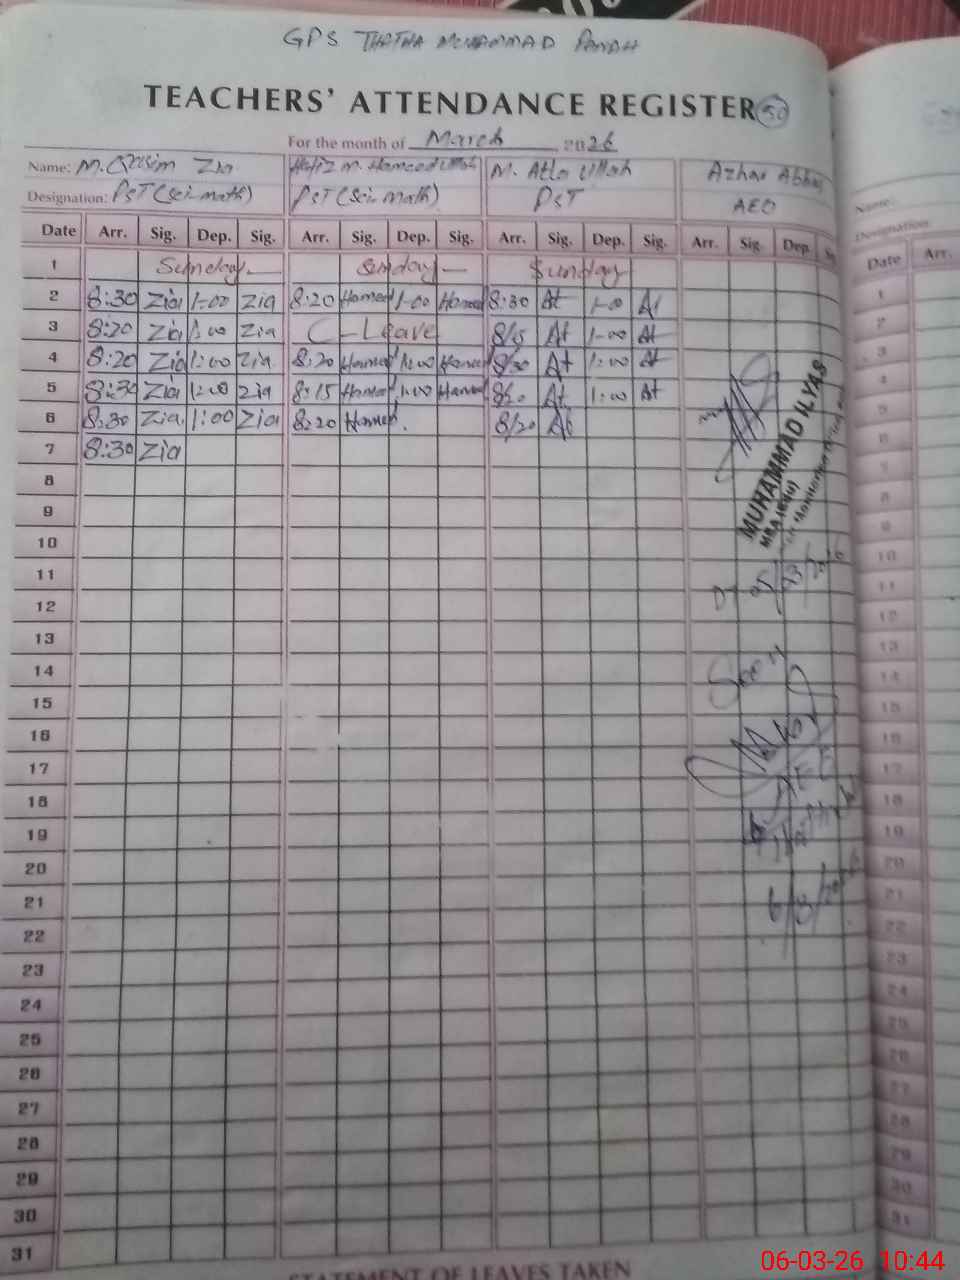 GPS THATHA MUHAMMAD PANAH
TEACHERS' ATTENDANCE REGISTER 50
For the month of March 2026
Name: M. Qasim Zia Hafiz M. Hameed Ullah M. Atta Ullah Azhar Abbas
Designation: PST (Sci-math) PST (Sci-math) PST AEO
Date Arr. Sig. Dep. Sig. Arr. Sig. Dep. Sig. Arr. Sig. Dep. Sig. Arr. Sig. Dep.
1 Sunday Sunday Sunday
2 8:30 Zia 1-00 Zia 8:20 Hameed 1-00 Hameed 8:30 At 1-00 At
3 8:20 Zia 1:00 Zia C-Leave 8/15 At 1-00 At
4 8:20 Zia 1:00 Zia 8:20 Hameed 1:00 Hameed 8/30 At 1:00 At
5 8:30 Zia 1:00 Zia 8:15 Hameed 1:00 Hameed 8/20 At 1:00 At
6 8:30 Zia 1:00 Zia 8:20 Hameed 8/20 At
7 8:30 Zia
8
9
10
11
12
13
14
15
16
17
18
19
20
21
22
23
24
25
26
27
28
29
30
31
MUHAMMAD ILYAS
05/03/2026
Seen
6/3/2026
STATEMENT OF LEAVES TAKEN
Name:
Designation:
Date Arr.
1
2
3
4
5
6
7
8
9
10
11
12
13
14
15
16
17
18
19
20
21
22
23
24
25
26
27
28
29
30
31
06-03-26 10:44